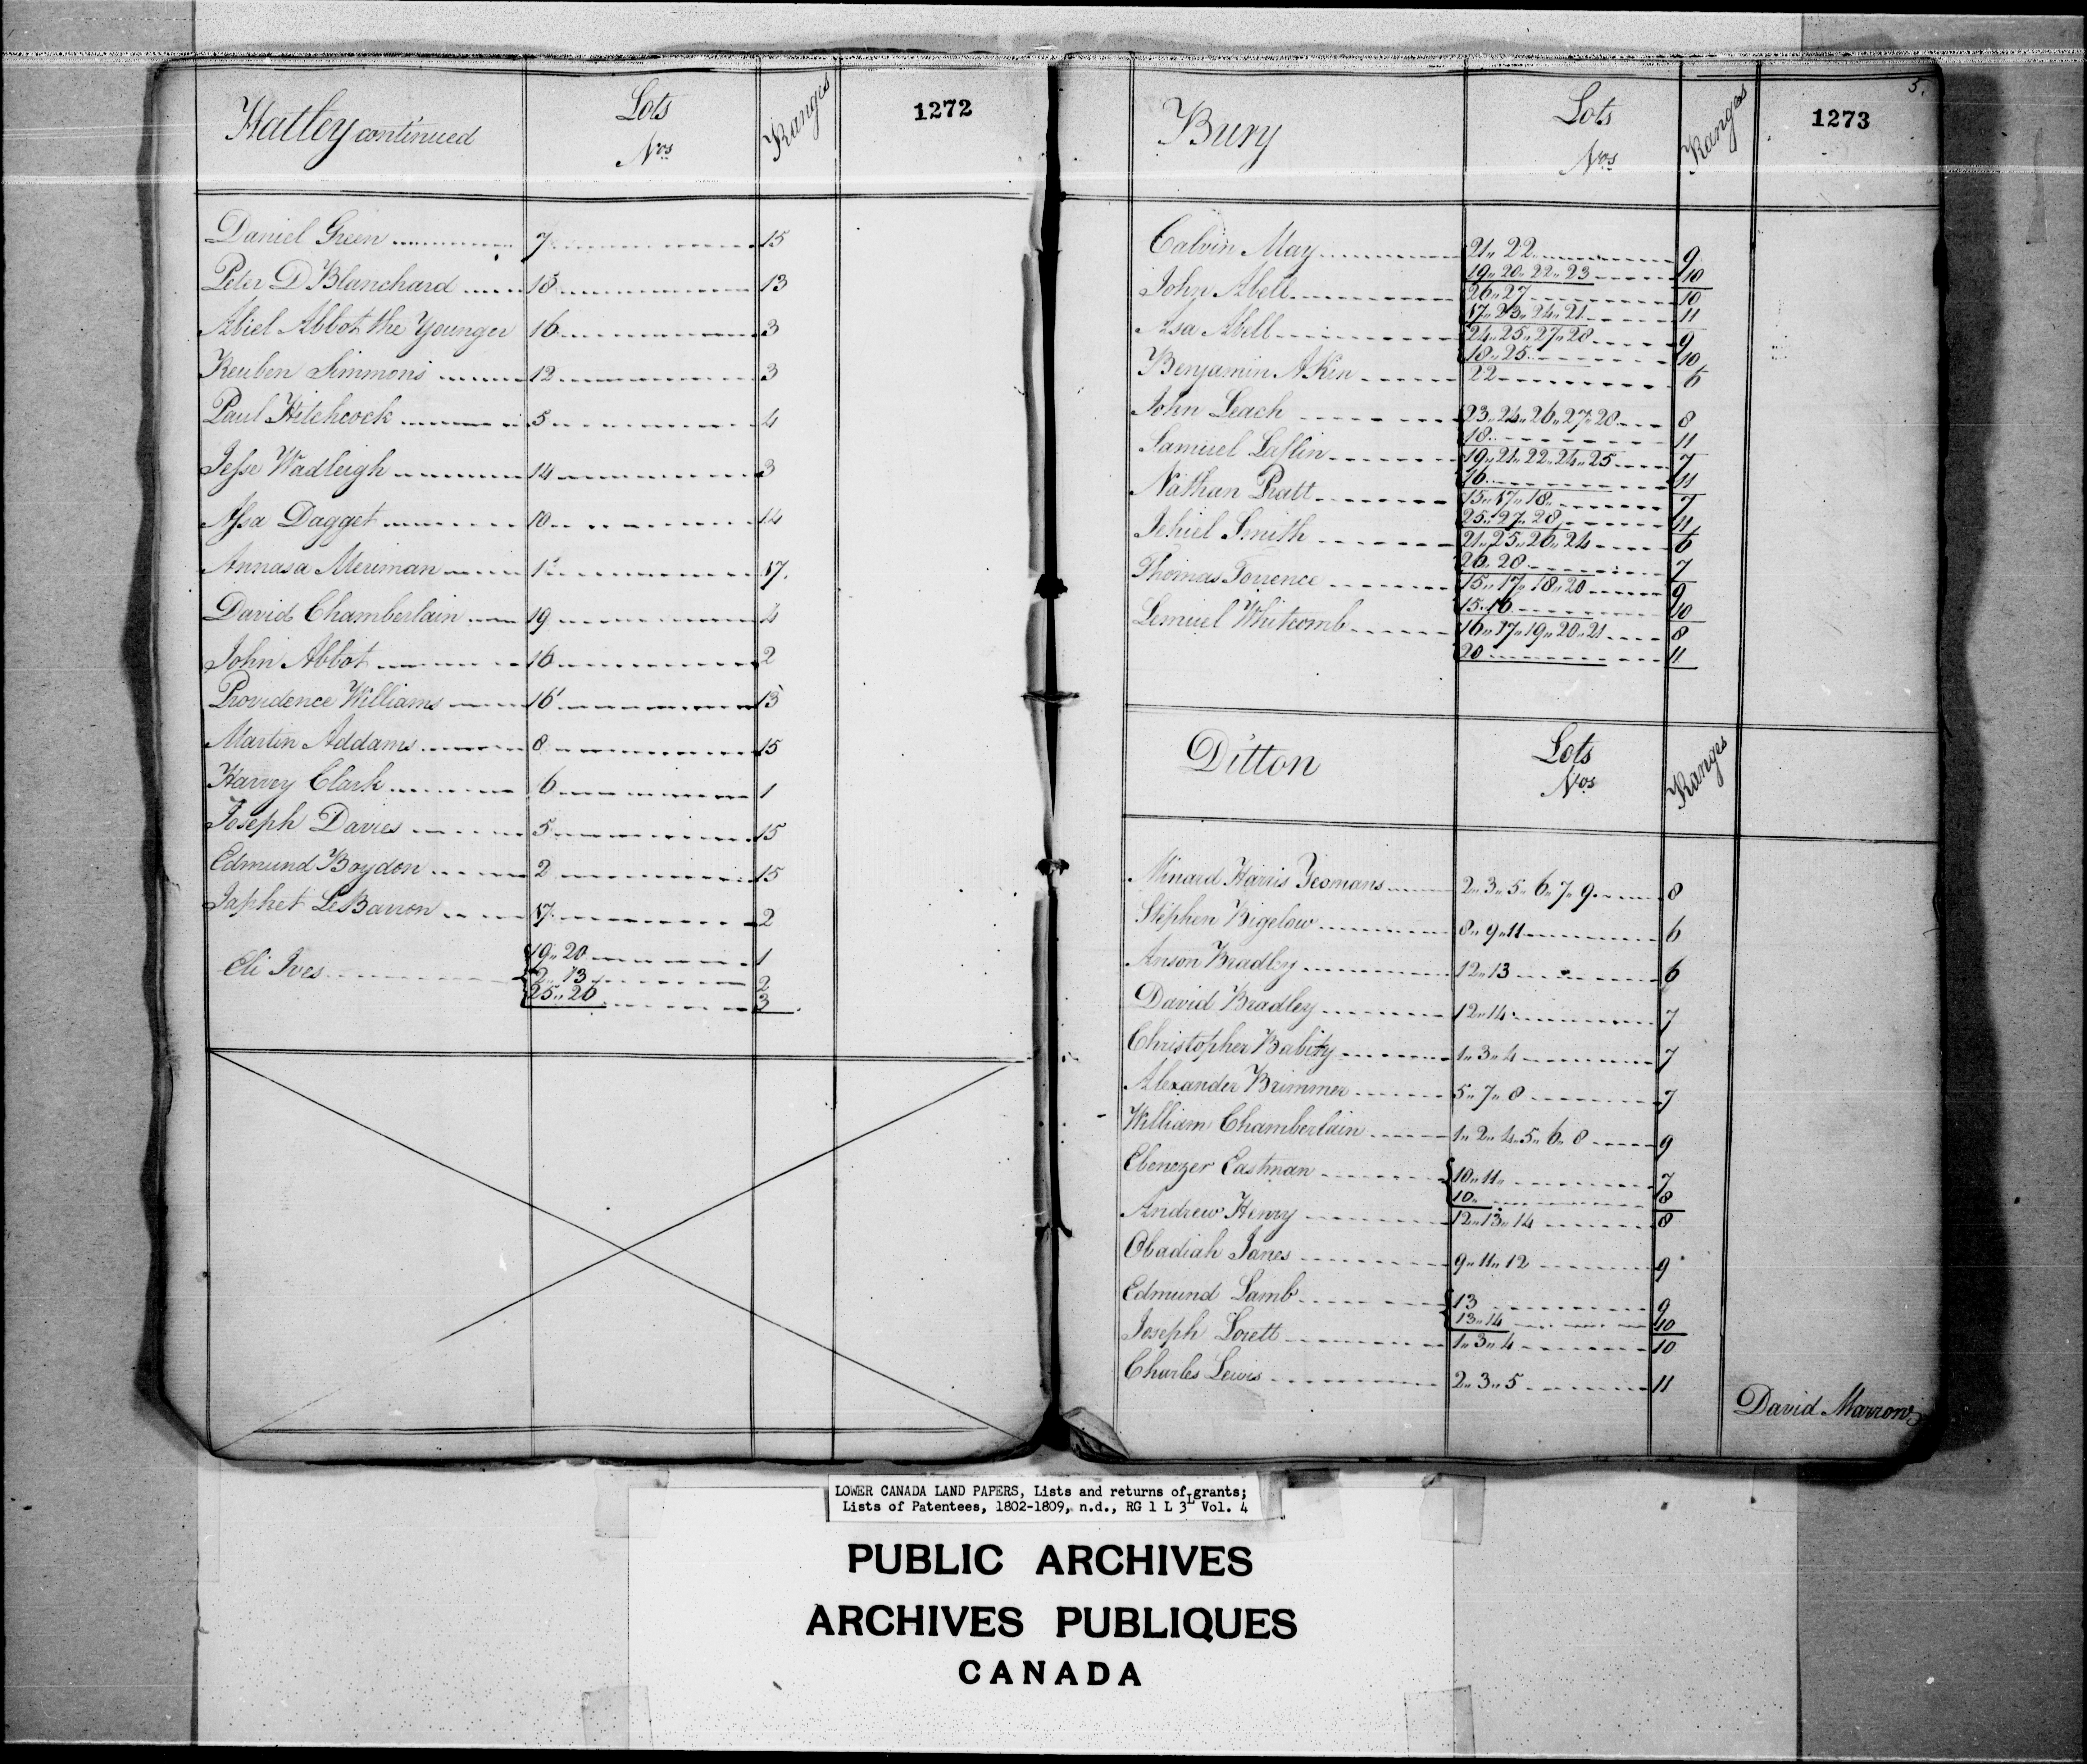 Hatley continued Lots Nos. Ranges 1272
Daniel Green 7 15
Peter D Blanchard 18 13
Abiel Abbot the Younger 16 3
Reuben Simmons 12 3
Paul Hitchcock 5 4
Jesse Wadleigh 14 3
Assa Dagget 10 14
Annasa Meriman 17.
David Chamberlain 19 4
John Abbot 16 2
Providence Williams 16 13
Martin Addams 8 15
Harvey Clark 6 1
Joseph Davies 5 15
Edmund Boydon 2 15
Japhet LeBarron 17 2
Eli Ives 19 " 20 1
2 " 13 2
25 " 26 3
5.
Bury Lots Nos. Ranges 1273
Calvin May 21 " 22 9
19 " 20 " 22 " 23 10
John Abell 26 " 27 10
17 " 23 " 24 " 21 11
Asa Abell 24 " 25 " 27 " 28 9
18 " 25 10
Benjamin Akin 22 6
John Leach 23 " 24 " 26 " 27 " 28 8
18 11
Samuel Laflin 19 " 21 " 22 " 24 " 25 7
16 11
Nathan Pratt 15 " 17 " 18 7
25 " 27 " 28 11
Jehiel Smith 21 " 25 " 26 " 24 6
26 " 28 7
Thomas Torrence 15 " 17 " 18 " 20 9
15 " 16 10
Lemuel Whitcomb 16 " 17 " 19 " 20 " 21 8
20 11
Ditton Lots Nos. Ranges
Minard Harris Yeomans 2 " 3 " 5 " 6 " 7 " 9 8
Stephen Bigelow 8 " 9 " 11 6
Anson Bradley 12 " 13 6
David Bradley 12 " 14 7
Christopher Babity 1 " 3 " 4 7
Alexander Brimmer 5 " 7 " 8 7
William Chamberlain 1 " 2 " 4 " 5 " 6 " 8 9
Ebenezer Eastman 10 " 11 " 7
10 " 8
Andrew Henry 12 " 13 " 14 8
Obadiah Janes 9 " 11 " 12 9
Edmund Lamb 13 9
13 " 14 10
Joseph Lorett 1 " 3 " 4 10
Charles Lewis 2 " 3 " 5 11
David Marrow
LOWER CANADA LAND PAPERS, Lists and returns of grants;
Lists of Patentees, 1802-1809, n.d., RG 1 L 3L Vol. 4
PUBLIC ARCHIVES
ARCHIVES PUBLIQUES
CANADA